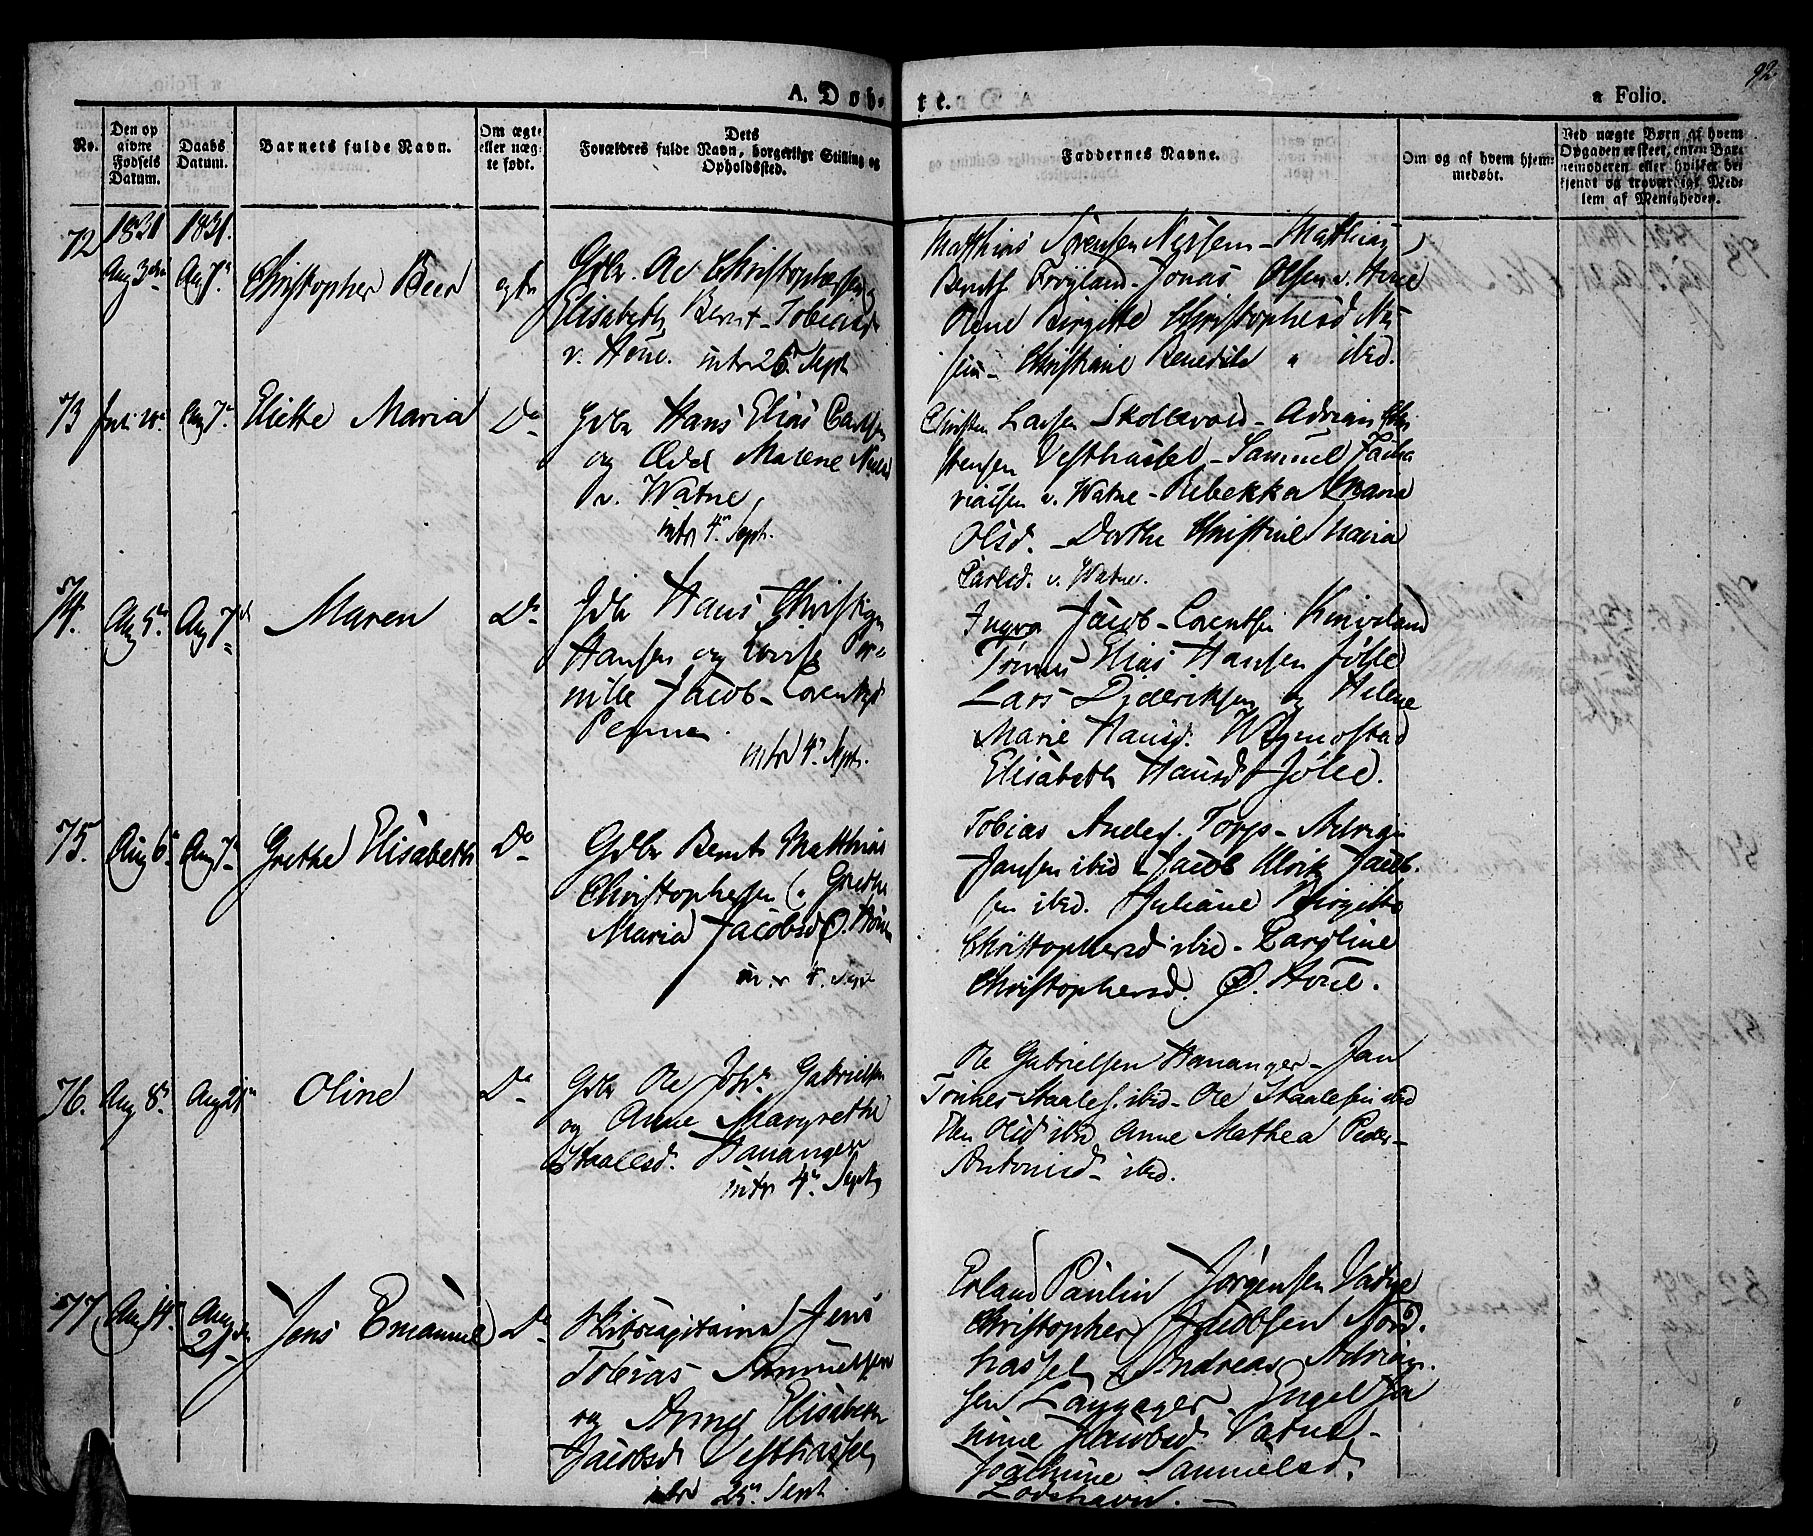 92
A. Døb- te.
a Folio.
No.
Den op
givne
Fødsels
Datum.
Daabs
Datum.
Barnets fulde Navn.
Om ægte
eller uæg-
te født.
Dets
Forældres fulde Navn, borgerlige Stilling og
Opholdssted.
Faddernes Navne.
Om og af hvem hjem-
medøbt.
Ved uægte Børn af hvem
Opgaven er skeet, enten Bar-
nemoderen eller hvilket be-
kjendt og troværdigt Med-
lem af Menigheden.
72
1831
Aug 3die
1831.
Aug 7n
Christopher Beer
egte
Gdbr. Christophersen
Elisabeth Bernt-Tobiasd
v. Høne. intr 26 Sept
Matthias Sørensen Nissen - Mathias
Berntsen Frøyland - Jonas Olsen v. Høne
Olene Birgitte Christophersd
Christiane Benedicte " ibid.
73
Aug 7n
Eliette Maria
Do
Gdbr Hans Elias Carlsen
og Malene
v. Watne
intr 4n Sept.
Christen Larsen Skollevold - Adrian Chri
stensen Vesthassel - Samuel Zacha
riassen v. Watne - Rebekka Maria
Olsd. - Dorthe Christine Maria
Carlsd. v. Watne.
74.
Aug 5n
Aug 7n
Maren
Do
Gdbr Hans Christian
Hansen og Lovise Per-
nille Jacob-Lorentsd
Penne.
intrd 4n Sept.
Jacob-Lorentsen
Tønnes Elias Hansen Jølle
Lars Dideriksen og Helene
Marie Hansd. Wemostad
Elisabeth Hansd Jølle.
75.
Aug 6n
Aug 7n
Grethe Elisabeth
Do
Gdbr Bernt Matthias
Christophersen (. Grethe
Maria Jacobsd Ø. Høne
4. Sept
Tobias Anders. Torp - Adrian
Jansen ibid - Jacob Ulrik Jacob-
sen ibid. Juliane Birgitte
Christophersd ibid - Caroline
Christophersd. Ø. Høne.
76.
Aug 8n
Aug 21n
Oline
Do
Gdbr Ole Joh. Gabrielsen
og Anne Margrethe
Staalesd. Hananger
intr 4n Sept
Ole Gabrielsen Hananger - Jan
Tønnes Staales. ibid - Ole Staalesen ibid
Ellen Olsd ibid Anne Mathea Peder-
Antonisd - ibid.
77
Aug 14.
Aug
21
Jens Emanuel
Do
Skibscapitaine Jens
Tobias Samuelsen
og Anne Elisabeth
Jacobsd Vesthassel
intrd 25n Sept
Erland Paulin Jørgensen Vatne
Christopher Jacobsen Nord-
hassel Andreas Adrian-
sen Langager. Engel Ja
nine Jacobsd Vatne -
Joachine Samuelsd.
Lodshavn. -